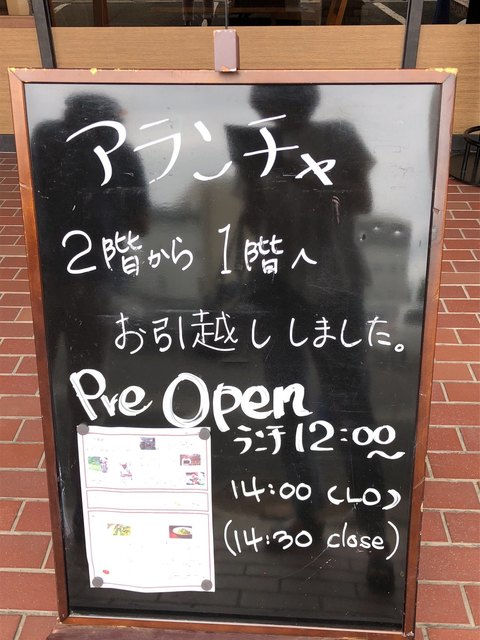 アランチャ
2階から 1階へ
お引越し しました。
Pre Open
ランチ12:00〜
14:00 (LO)
(14:30 close)